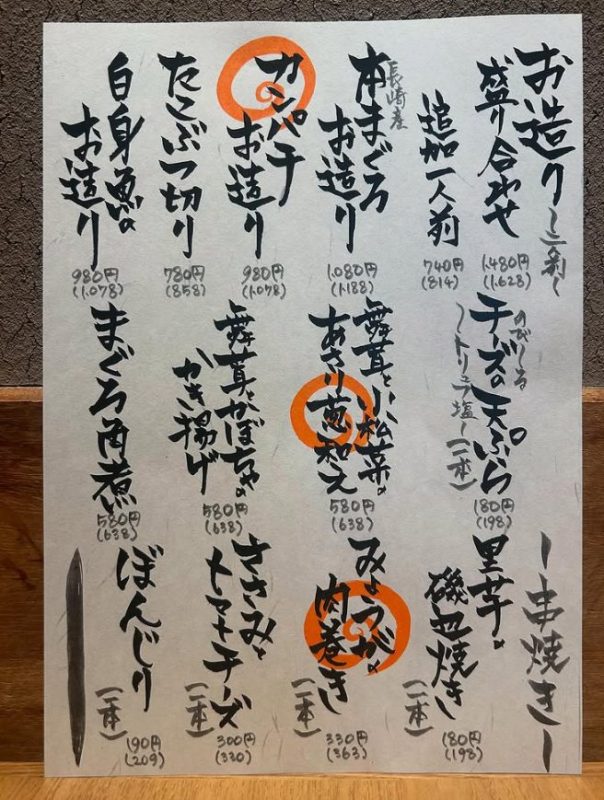 お造り
〜二人前〜
盛り合わせ
1,480円
(1,628)
追加一人前
740円
(814)
長崎産
本まぐろ
お造り
1,080円
(1,188)
カンパチ
お造り
980円
(1,078)
たこぶつ切り
780円
(858)
白身魚の
お造り
980円
(1,078)
のび〜る
チーズの天ぷら
〜トリュフ塩〜(一本)
180円
(198)
舞茸と小松菜の
あさり葱和え
580円
(638)
舞茸とかぼちゃの
かき揚げ
580円
(638)
まぐろ角煮
580円
(638)
〜串焼き〜
里芋の
磯辺焼き
(一本)
180円
(198)
みょうがの
肉巻き
(一本)
330円
(363)
ささみと
トマトチーズ
(一本)
300円
(330)
ぼんじり
(一本)
190円
(209)